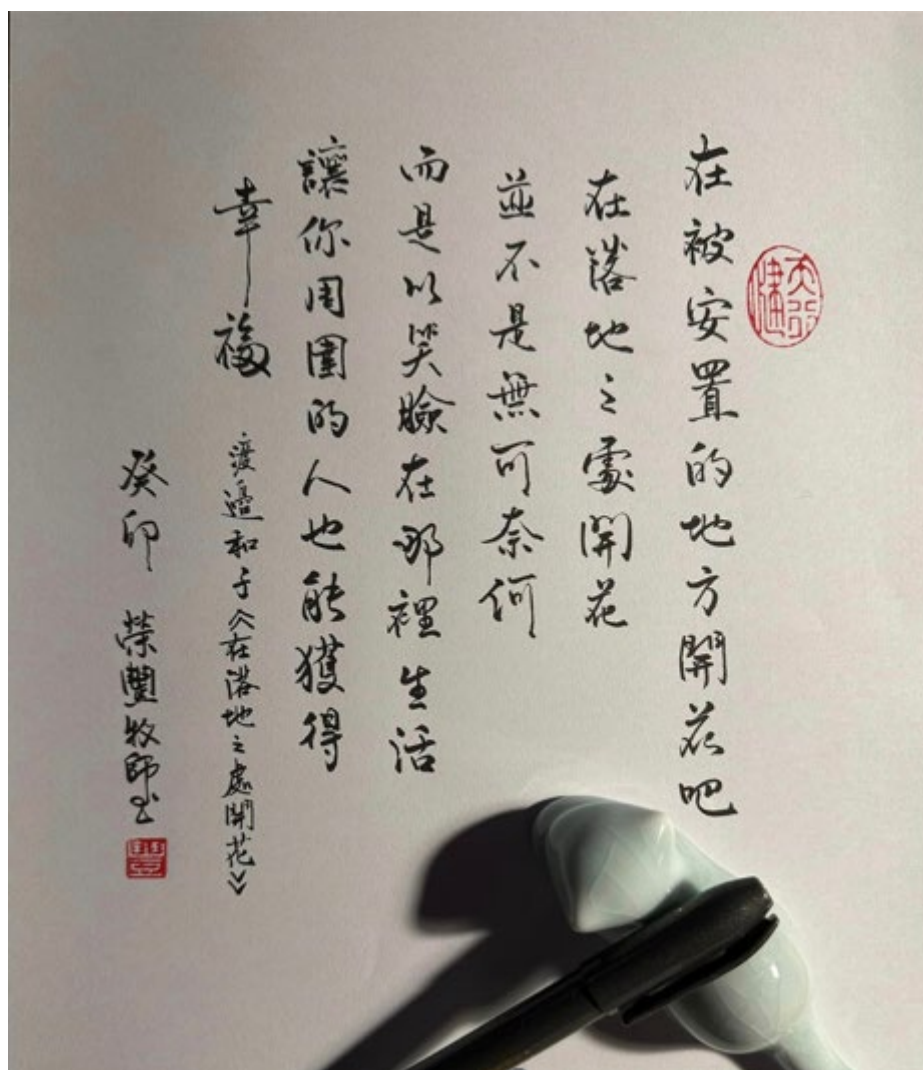 在被安置的地方開花吧
在落地之處開花
並不是無可奈何
而是以笑臉在那裡生活
讓你周圍的人也能獲得
幸福
渡邊和子《在落地之處開花》
癸卯 榮豐牧師书
天行健
豐